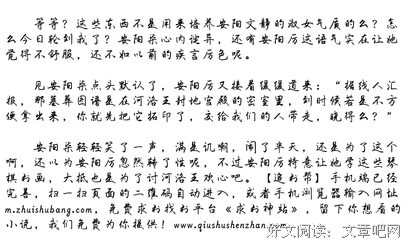 等等？这些东西不是用来培养安阳文静的淑女气质的么？怎
么今日轮到我了？安阳柒心内诧异，还有安阳厉这语气实在让她
觉得不舒服，还不如以前的疾言厉色呢。
见安阳柒点头默认了，安阳厉又接着缓缓道来：“据线人汇
报，那墓葬图谱是在河洛王封地宫殿的密室里，到时候若是不方
便拿出来，你就先把它拓印了，交给我们的人带走，晓得么？”
安阳柒轻轻笑了一声，满是讥嘲，闹了半天，还是为了这个
啊，还以为安阳厉忽然转了性呢，不过安阳厉特意让她学这些琴
棋书画，大抵也是为了讨河洛王欢心吧。【追书帮】手机端已经
完善，扫一扫页面的二维码自动进入，或者手机浏览器输入网址
m.zhuishubang.com，免费求书找书平台《求书神站》，留下你想看的
小说，我们免费为你提供！www.qiushushenzhan
好文阅读：文章吧网